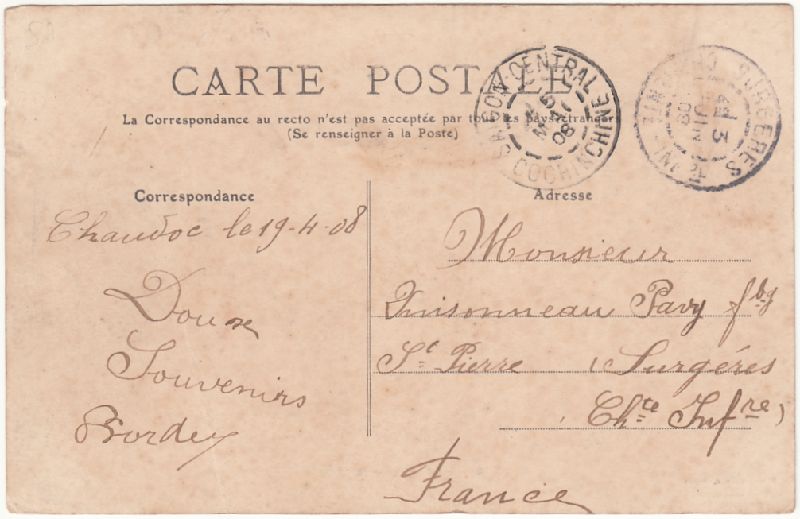 CARTE POSTALE
La Correspondance au recto n'est pas acceptée par tous les pays étrangers
(Se renseigner à la Poste)
SAIGON-CENTRAL
5
MAI
08
COCHINCHINE
SURGERES
3
JUIN
08
CHARENTE-INF
Correspondance
Chaudoc le 19-4-08
Doux
Souvenirs
Bordey
Adresse
Monsieur
Pavy fbg
St Pierre Surgéres
Chte Infre
France